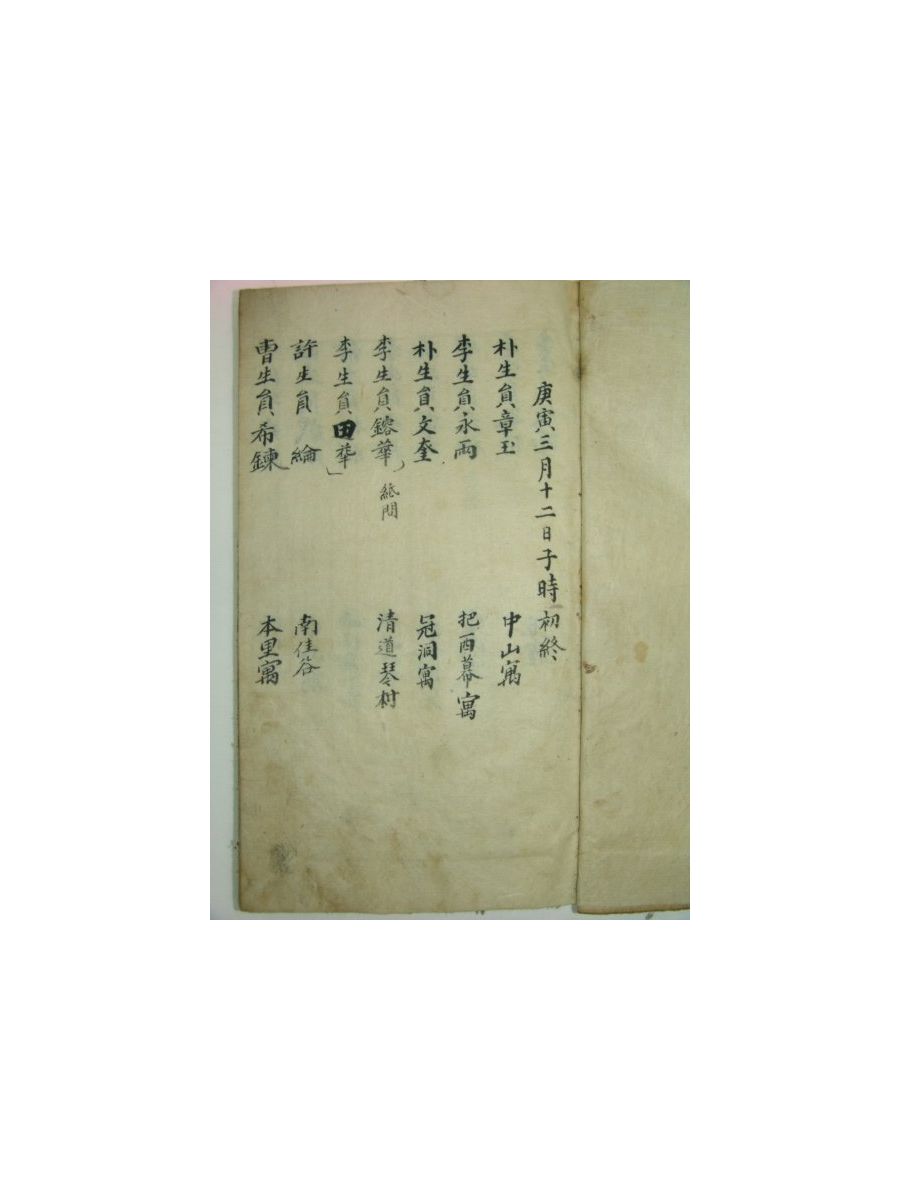 庚寅三月十二日子時初終
朴生員章玉 中山寓
李生員永雨 把西幕寓
朴生員文奎 冠洞寓
李生員鎔華 紙問 清道琴村
李生員田華
許生員綸 南佳谷
曺生員希鍊 本里寓